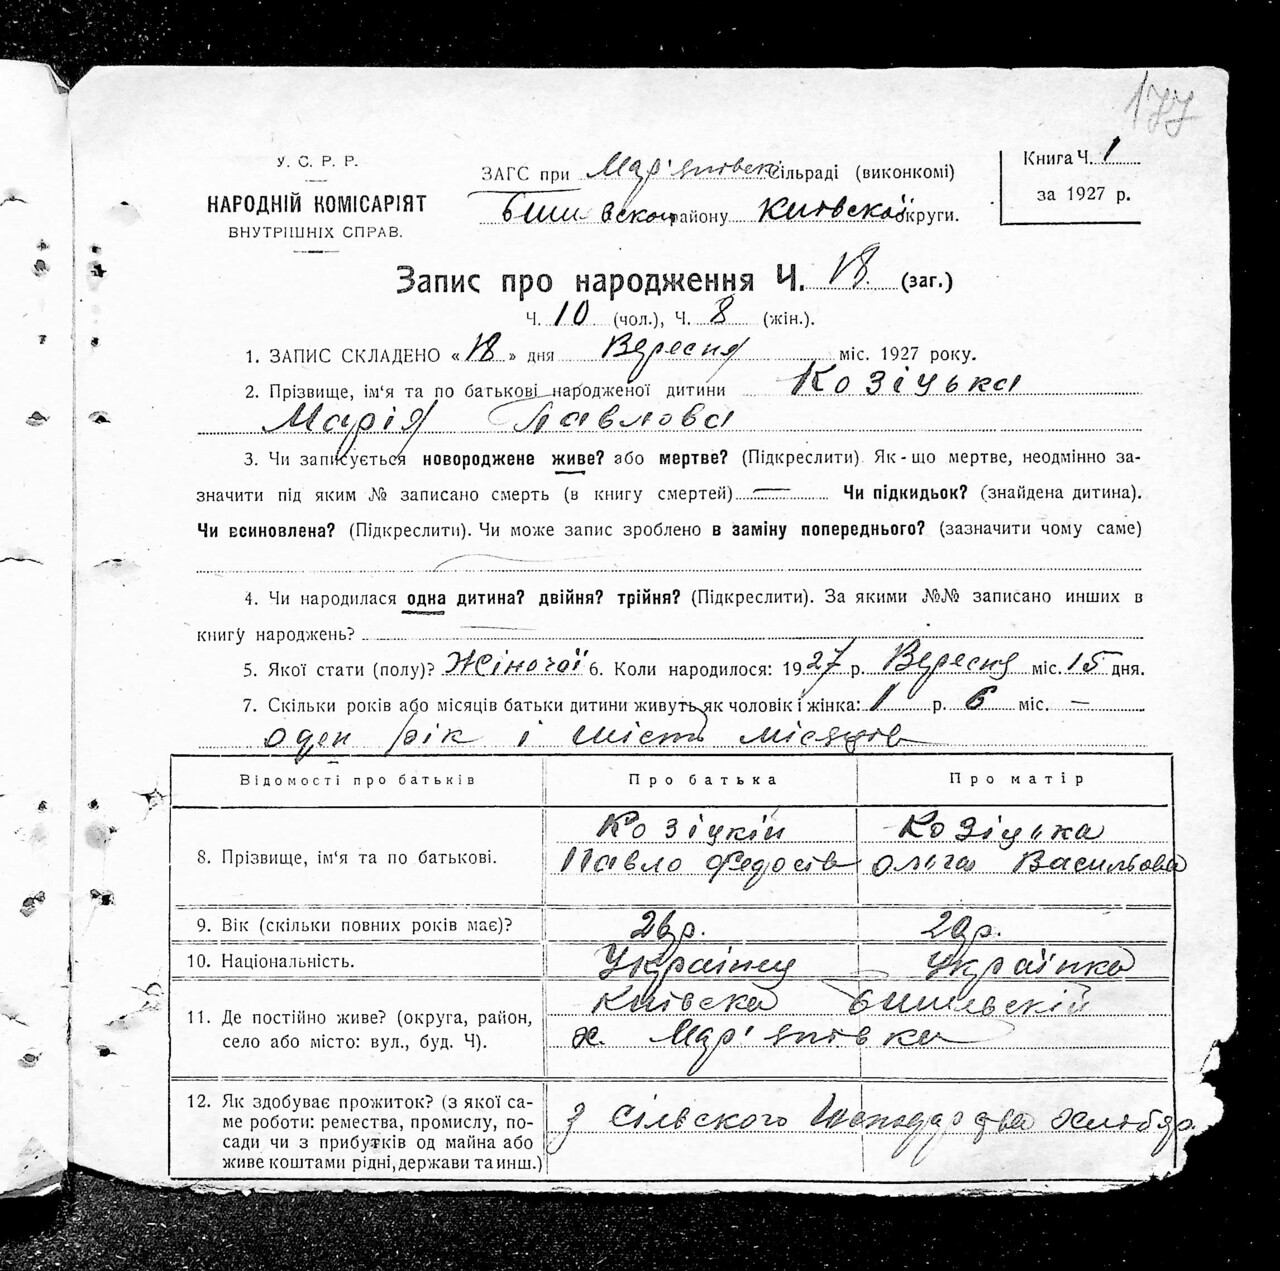 177
У. С. Р. Р.
НАРОДНІЙ КОМІСАРІЯТ
ВНУТРІШНІХ СПРАВ.
ЗАГС при Мар'янівскі сільраді (виконкомі)
Бишівском району Київскої округи.
Книга Ч. 1
за 1927 р.
Запис про народження Ч. 18 (заг.)
Ч. 10 (чол.), Ч. 8 (жін.).
1. ЗАПИС СКЛАДЕНО «18» дня Вересня міс. 1927 року.
2. Прізвище, ім'я та по батькові народженої дитини Козіцька
Марія Павлова
3. Чи записується новороджене живе? або мертве? (Підкреслити). Як-що мертве, неодмінно за-
значити під яким № записано смерть (в книгу смертей) — Чи підкидьок? (знайдена дитина).
Чи всиновлена? (Підкреслити). Чи може запис зроблено в заміну попереднього? (зазначити чому саме)
4. Чи народилася одна дитина? двійня? трійня? (Підкреслити). За якими №№ записано инших в
книгу народжень?
5. Якої стати (полу)? Жіночої 6. Коли народилося: 1927 р. Вересня міс. 15 дня.
7. Скільки років або місяців батьки дитини живуть як чоловік і жінка: 1 р. 6 міс. —
оден рік і шість місяців
Відомості про батьків Про батька Про матір
8. Прізвище, ім'я та по батькові.
Козіцкій Козіцька
Павло Федосів Ольга Васильова
9. Вік (скільки повних років має)? 26р. 20р.
10. Національність. Українец Українка
11. Де постійно живе? (округа, район,
село або місто: вул., буд. Ч).
Київска Бишівскій
х. Мар'янівка
12. Як здобуває прожиток? (з якої са-
ме роботи: ремества, промислу, по-
сади чи з прибутків од майна або
живе коштами рідні, держави та инш.)
з сільского господарства хлібор.